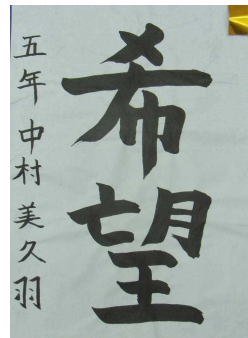 希望
五年 中村 美久羽